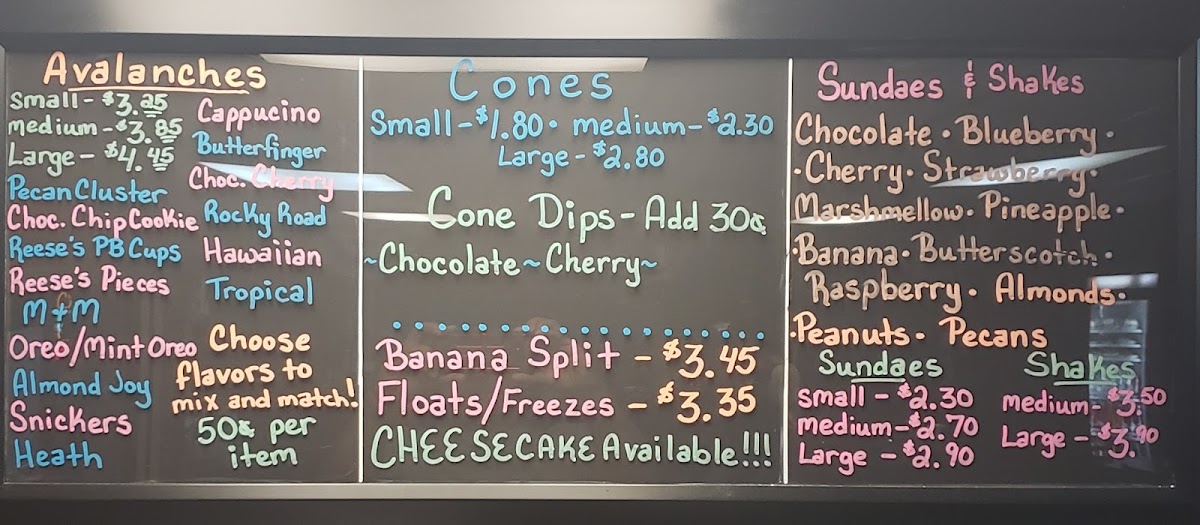 Avalanches
Small - $3.25
medium - $3.85
Large - $4.45
Pecan Cluster
Choc. Chip Cookie
Reese's PB Cups
Reese's Pieces
M+M
Oreo/Mint Oreo
Almond Joy
Snickers
Heath
Cappucino
Butterfinger
Choc. Cherry
Rocky Road
Hawaiian
Tropical
Choose
flavors to
mix and match!
50¢ per
item
Cones
Small - $1.80 · medium - $2.30
Large - $2.80
Cone Dips - Add 30¢
~Chocolate~Cherry~
Banana Split - $3.45
Floats/Freezes - $3.35
CHEESECAKE Available!!!
Sundaes & Shakes
Chocolate · Blueberry ·
· Cherry · Strawberry ·
Marshmellow · Pineapple ·
· Banana · Butterscotch ·
Raspberry · Almonds ·
· Peanuts · Pecans
Sundaes
small - $2.30
medium - $2.70
Large - $2.90
Shakes
medium - $3.50
Large - $3.90